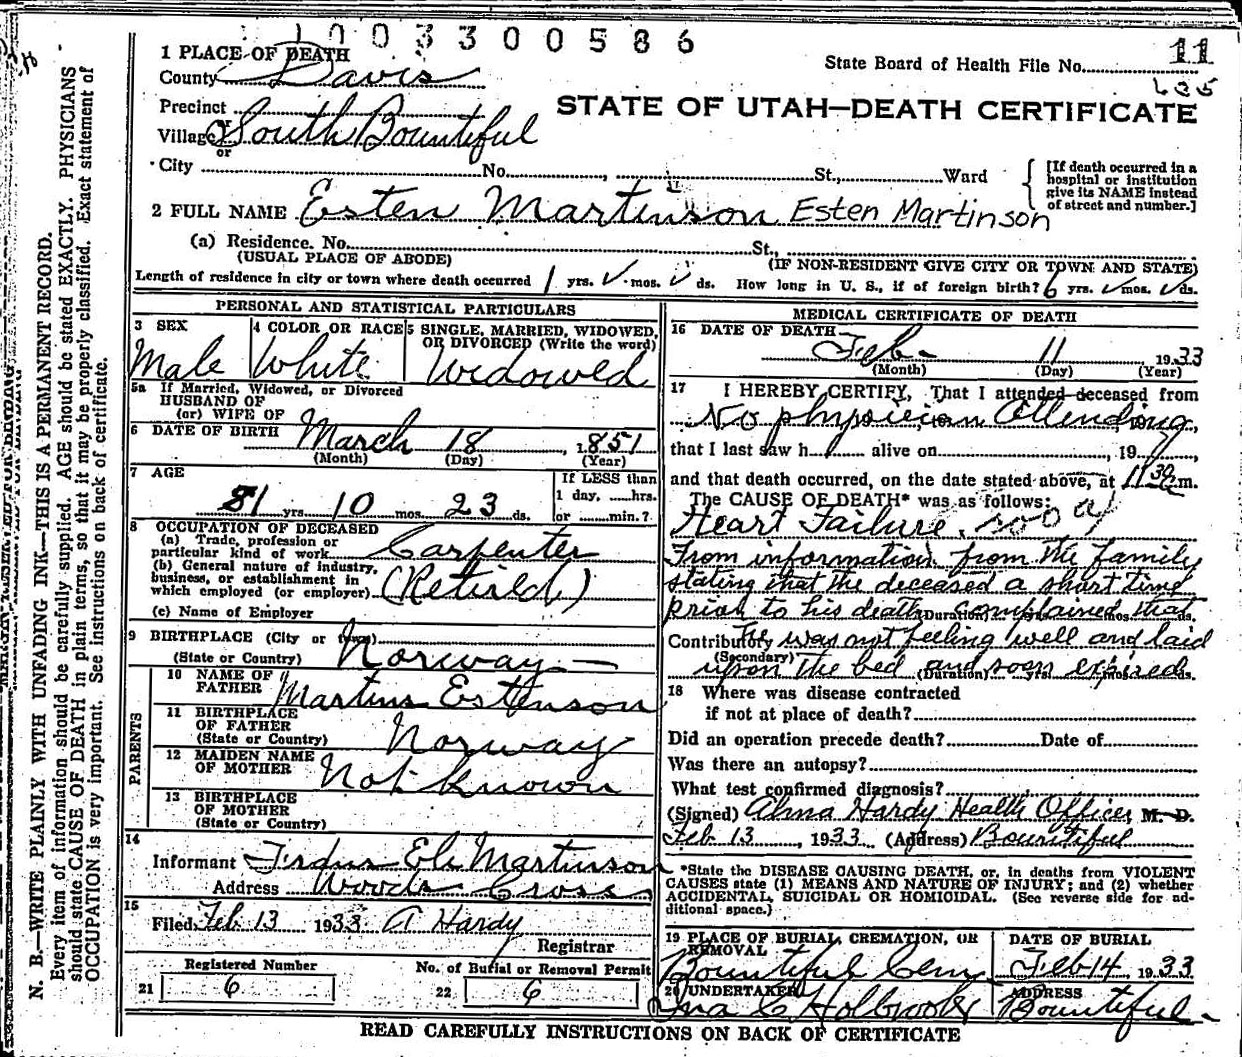 1003300586
11
635
1 PLACE OF DEATH
County Davis
State Board of Health File No.
STATE OF UTAH—DEATH CERTIFICATE
Precinct
or
Village South Bountiful
or
City No. , St., Ward
[If death occurred in a hospital or institution give its NAME instead of street and number.]
2 FULL NAME Esten Martinson Esten Martinson
(a) Residence. No. St.,
(USUAL PLACE OF ABODE) (IF NON-RESIDENT GIVE CITY OR TOWN AND STATE)
Length of residence in city or town where death occurred 1 yrs. ✓ mos. ✓ ds. How long in U. S., if of foreign birth? 6 yrs. ✓ mos. ✓ ds.
PERSONAL AND STATISTICAL PARTICULARS
3 SEX
Male
4 COLOR OR RACE
White
5 SINGLE, MARRIED, WIDOWED, OR DIVORCED (Write the word)
Widowed
5a If Married, Widowed, or Divorced
HUSBAND OF
(or) WIFE OF
6 DATE OF BIRTH March 18, 1851
(Month) (Day) (Year)
7 AGE
81 yrs. 10 mos. 23 ds.
If LESS than
1 day, hrs.
or min.?
8 OCCUPATION OF DECEASED
(a) Trade, profession or
particular kind of work Carpenter
(b) General nature of industry,
business, or establishment in
which employed (or employer) (Retired)
(c) Name of Employer
9 BIRTHPLACE (City or town)
(State or Country) Norway
PARENTS
10 NAME OF
FATHER Martins Estenson
11 BIRTHPLACE
OF FATHER
(State or Country) Norway
12 MAIDEN NAME
OF MOTHER Not Known
13 BIRTHPLACE
OF MOTHER
(State or Country)
14
Informant Eli Martinson
Address Woods Cross
15
Filed Feb 13 1933 A Hardy
Registrar
Registered Number
21 6
No. of Burial or Removal Permit
22 6
MEDICAL CERTIFICATE OF DEATH
16 DATE OF DEATH
Feb. 11 1933
(Month) (Day) (Year)
17 I HEREBY CERTIFY, That I attended deceased from
No physician attending,
that I last saw h alive on , 19
and that death occurred, on the date stated above, at 11 30 a.m.
The CAUSE OF DEATH* was as follows:
Heart Failure. 200 a
From information from the family
stating that the deceased a short time
prior to his death (Duration) complained that mos. ds.
Contributory He was not feeling well and laid
(Secondary)
upon the bed (Duration) and soon yrs. expired mos. ds.
18 Where was disease contracted
if not at place of death?
Did an operation precede death? Date of
Was there an autopsy?
What test confirmed diagnosis?
(Signed) Alma Hardy Health Officer M. D.
Feb 13, 1933 (Address) Bountiful
*State the DISEASE CAUSING DEATH, or, in deaths from VIOLENT
CAUSES state (1) MEANS AND NATURE OF INJURY; and (2) whether
ACCIDENTAL, SUICIDAL OR HOMICIDAL. (See reverse side for ad-
ditional space.)
19 PLACE OF BURIAL, CREMATION, OR
REMOVAL
Bountiful Cem
DATE OF BURIAL
Feb 14, 1933
20 UNDERTAKER
Holbrook
ADDRESS
Bountiful
READ CAREFULLY INSTRUCTIONS ON BACK OF CERTIFICATE
N. B.—WRITE PLAINLY WITH UNFADING INK—THIS IS A PERMANENT RECORD.
Every item of information should be carefully supplied. AGE should be stated EXACTLY. PHYSICIANS
should state CAUSE OF DEATH in plain terms, so that it may be properly classified. Exact statement of
OCCUPATION is very important. See instructions on back of certificate.